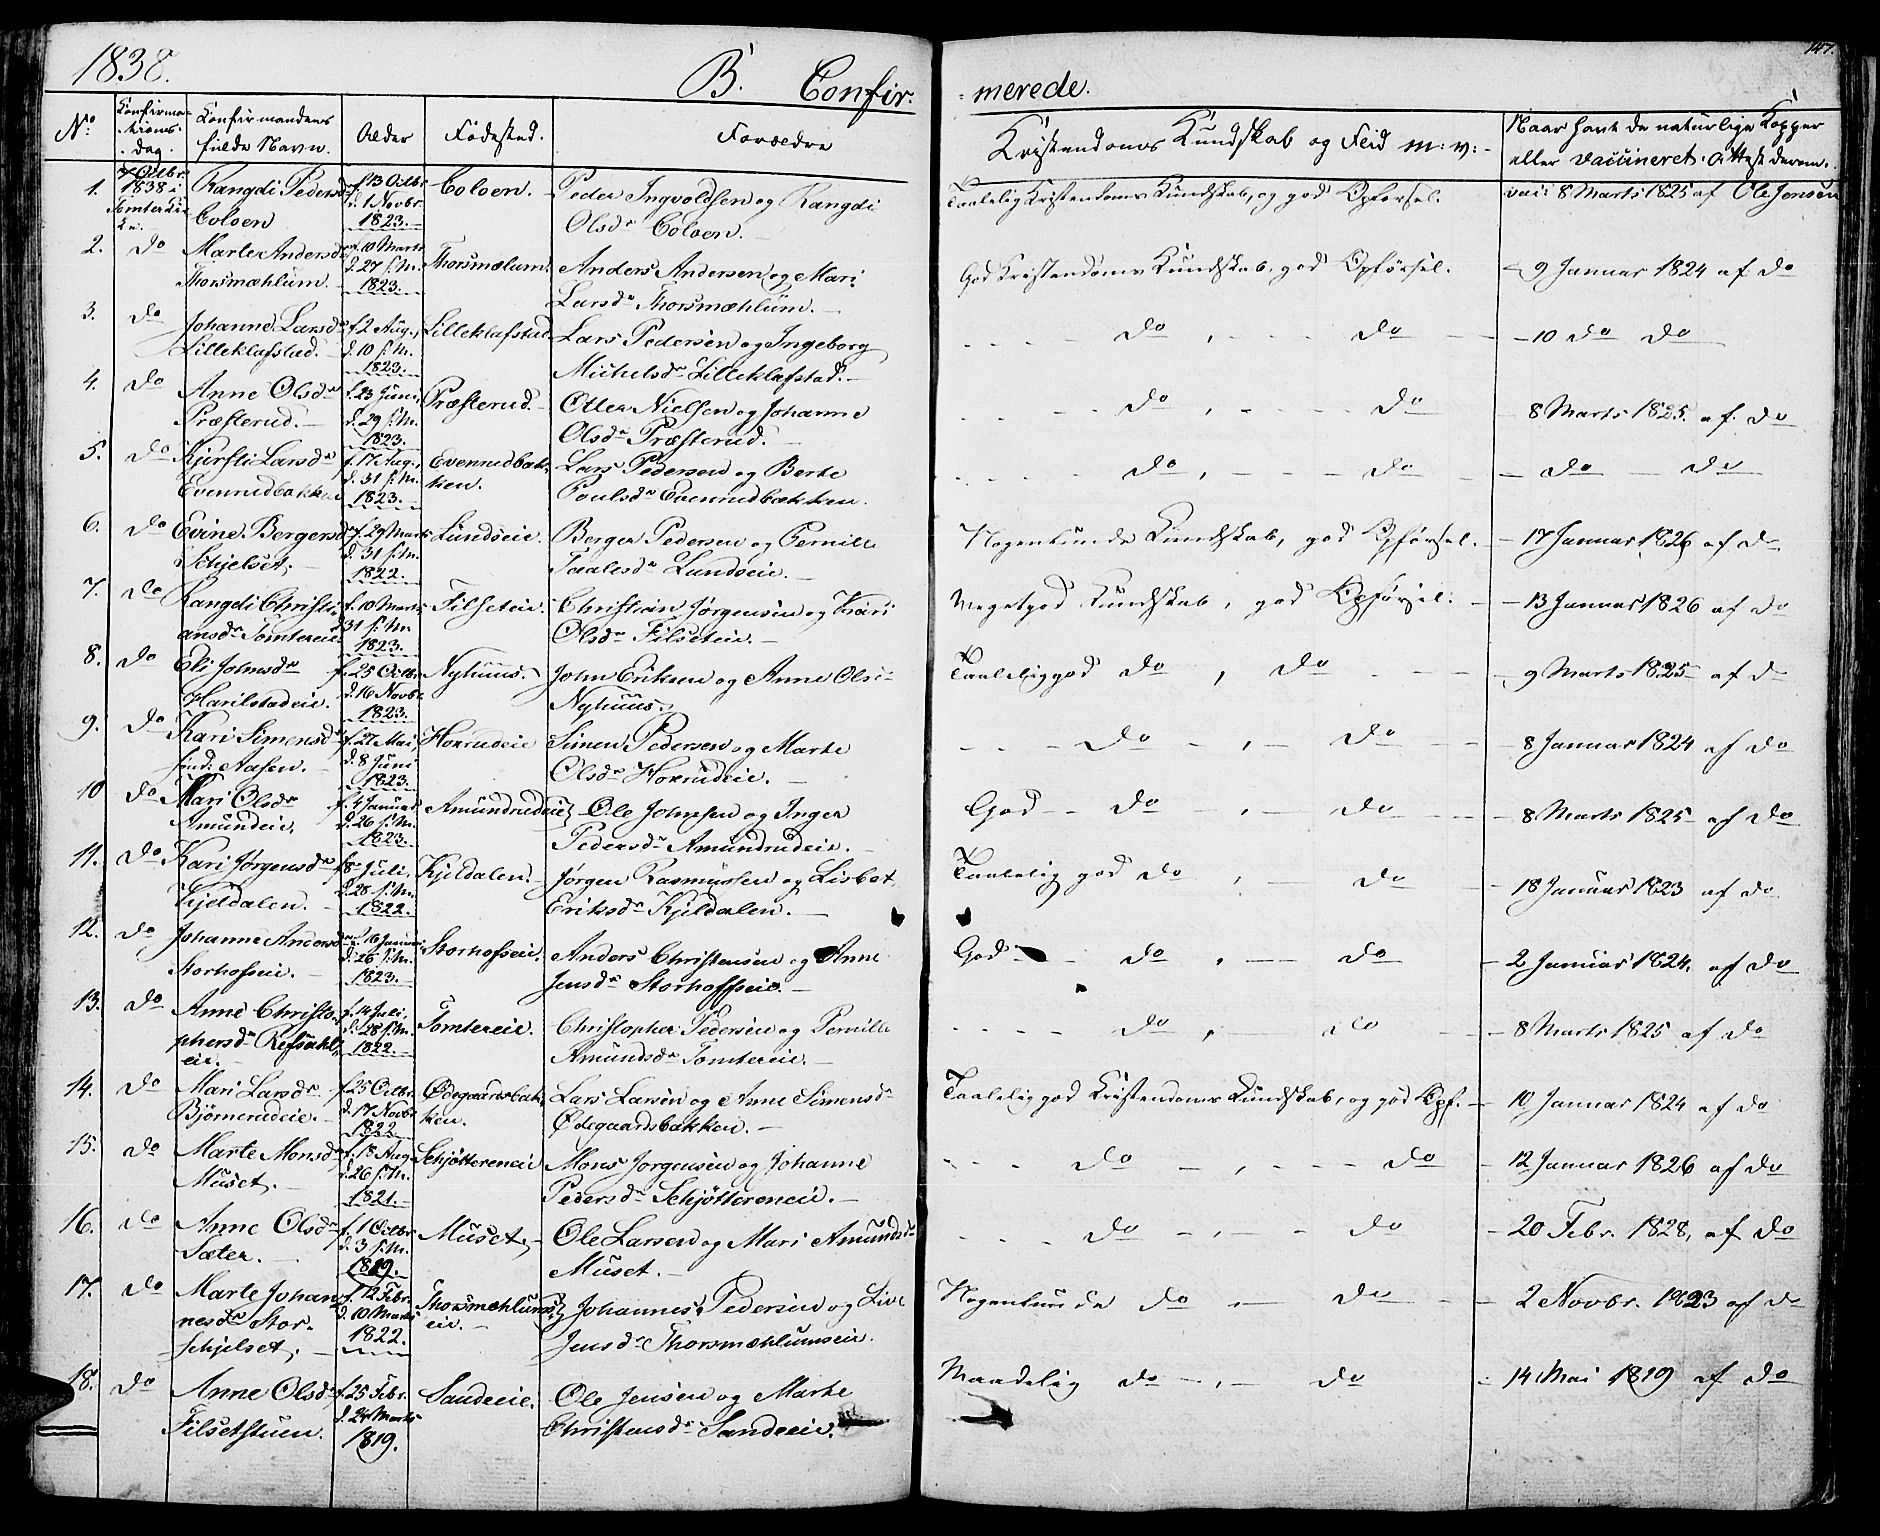 1838.
B. Confir-
N.o
Confirma-
tions-
dag.
Confirmandens
fulde Navn.
Alder
Fødested.
Forældre
1.
7 Octbr.
1838 i
Rangdi Pedersd.
Coloen
f. 13 Octbr
d. 1 Novbr
1823.
Coloen.
Peder Ingvoldsen og Rangdi
Olsd.r Coloen.
2.
do
Marte Andersd.
Thorsmæhlum.
f. 10 Marts
d. 27 s. M.
1823.
Thorsmælum.
Anders Andersen og Mari
Larsd.r Thorsmæhlum.
3.
do
Johanne Larsd.r
Lilleklafstad.
f. 2 Aug.,
d. 10 s. M.
1823.
Lilleklafstad
Lars Pedersen og Ingeborg
Michelsd.r Lilleklafstad.
4.
do
Anne Olsd.r
Præsterud.
f. 23 Juni,
d. 29 s. M.
1823.
Præsterud.
Otter Nielsen og Johanne
Olsd.r Præsterud.
5.
do
Kjersti Larsd.r
Evenrudbakken
f. 17 Aug.,
d. 31 s. M.
1823.
Evenrudbak-
ken.
Lars Pedersen og Berte
Paulsd.r Evenrudbakken.
6.
do
Evine Bergersd.r
Schjelset.
f. 29 Marts
d. 31 s. M.
1822.
Lundseie.
Berger Pedersen og Pernille
Taalesd.r Lundseie.
7.
do
Rangdi Christi-
ansd.r Tomtereie
f. 10 Marts
d. 31 s. M.
1823.
Filseteie.
Christian Jørgensen og Kari
Olsd.r Filseteie.
8.
do
Eli Johnsd.r
Harilstadeie.
f. 25 Octbr.
d. 16 Novbr.
1823.
Nyhuus.
John Eriksen og Anne Olsd.
Nyhuus.
9.
do
Kari Simensd.r
Aasen.
f. 27 Mai
d. 8 Juni
1823.
Hoxrudeie
Simen Pedersen og Marte
Olsd.r Hoxrudeie.
10
do
Mari Olsd.r
Amundeie,
f. 4 Januar
d. 26 s. M.
1823.
Amundrudeie
Ole Johnsen og Inger
Pedersd.r Amundrudeie.
11.
do
Kari Jørgensd.r
Kjeldalen.
f. 8 Juli,
d. 28 s. M.
1822.
Kjeldalen.
Jørgen Rasmussen og Lisbet
Eriksd.r Kjeldalen.
12.
do
Johanne Andersd.r
Storhofseie.
f. 16 Januar
d. 26 s. M.
1823.
Storhofseie.
Anders Christensen og Anne
Jensd.r Storhoffseie.
13.
do
Anne Christo-
phersd.r Refsahl-
eie.
f. 14 Juli,
d. 28 s. M.
1822.
Tomtereie.
Christopher Pedersen og Pernille
Amundsd.r Tomtereie.
14.
do
Mari Larsd.r
Bjørnerudeie.
f. 25 Octbr.
d. 17 Novbr
1822.
Ødegaardsbak-
ken.
Lars Larsen og Anne Simensd.r
Ødegaardsbakken.
15.
do
Marte Monsd.
Muset.
f. 18 Aug.
d. 26 s. M.
1821.
Schjøttereneie
Mons Jørgensen og Johanne
Pedersd.r Schjøttereneie.
16.
do
Anne Olsd.r
Sæter.
f. 1 Octbr
d. 3 s. M.
1819.
Muset.
Ole Larsen og Mari Amundsd.r
Muset.
17.
do
Marte Johan-
nesd.r Stor-
Schjelset.
f. 12 Febr.
d. 10 Marts
1822.
Thorsmæhlums-
eie.
Johannes Pedersen og Live
Jensd.r Thorsmæhlumseie.
18.
do
Anne Olsd.r
Filsetstuen.
f. 25 Febr.
d. 24 Marts
1819.
Sandeeie.
Ole Jensen og Marte
Christensd.r Sandeeie.
147.
-merede.
Kristendoms Kundskab og Flid m: v:
Naar havt de naturlige Kopper
eller vaccineret. Attest derom.
Taalelig Kristendoms Kundskab, og god Opførsel.
vac: 8 Marts 1825 af Ole Jensen
God Kristendoms Kundskab, god Opførsel.
9 Januar 1824 af do
do, do
10 do do
do, do
8 Marts 1825. af do
do, do
do do
Nogenlunde Kundskab, god Opførsel.
17 Januar 1826 af do
Meget god Kundskab, god Opførsel.
13 Januar 1826 af do
Taalelig god do, do
9 Marts 1825 af do
do, do
8 Januar 1824 af do
God do, do
8 Marts 1825 af do
Taalelig god do, do
18 Januar 1823 af do
God do, do
2 Januar 1824. af do
do, do
8 Marts 1825 af do
Taalelig god Kristendoms Kundskab, og god Opf.
10 Januar 1824 af do
do, do
12 Januar 1826 af do
do, do
20 Febr. 1828, af do
Nogenlunde do, do
2 Novbr. 1823 af do
Maadelig do, do
14 Mai 1819 af do